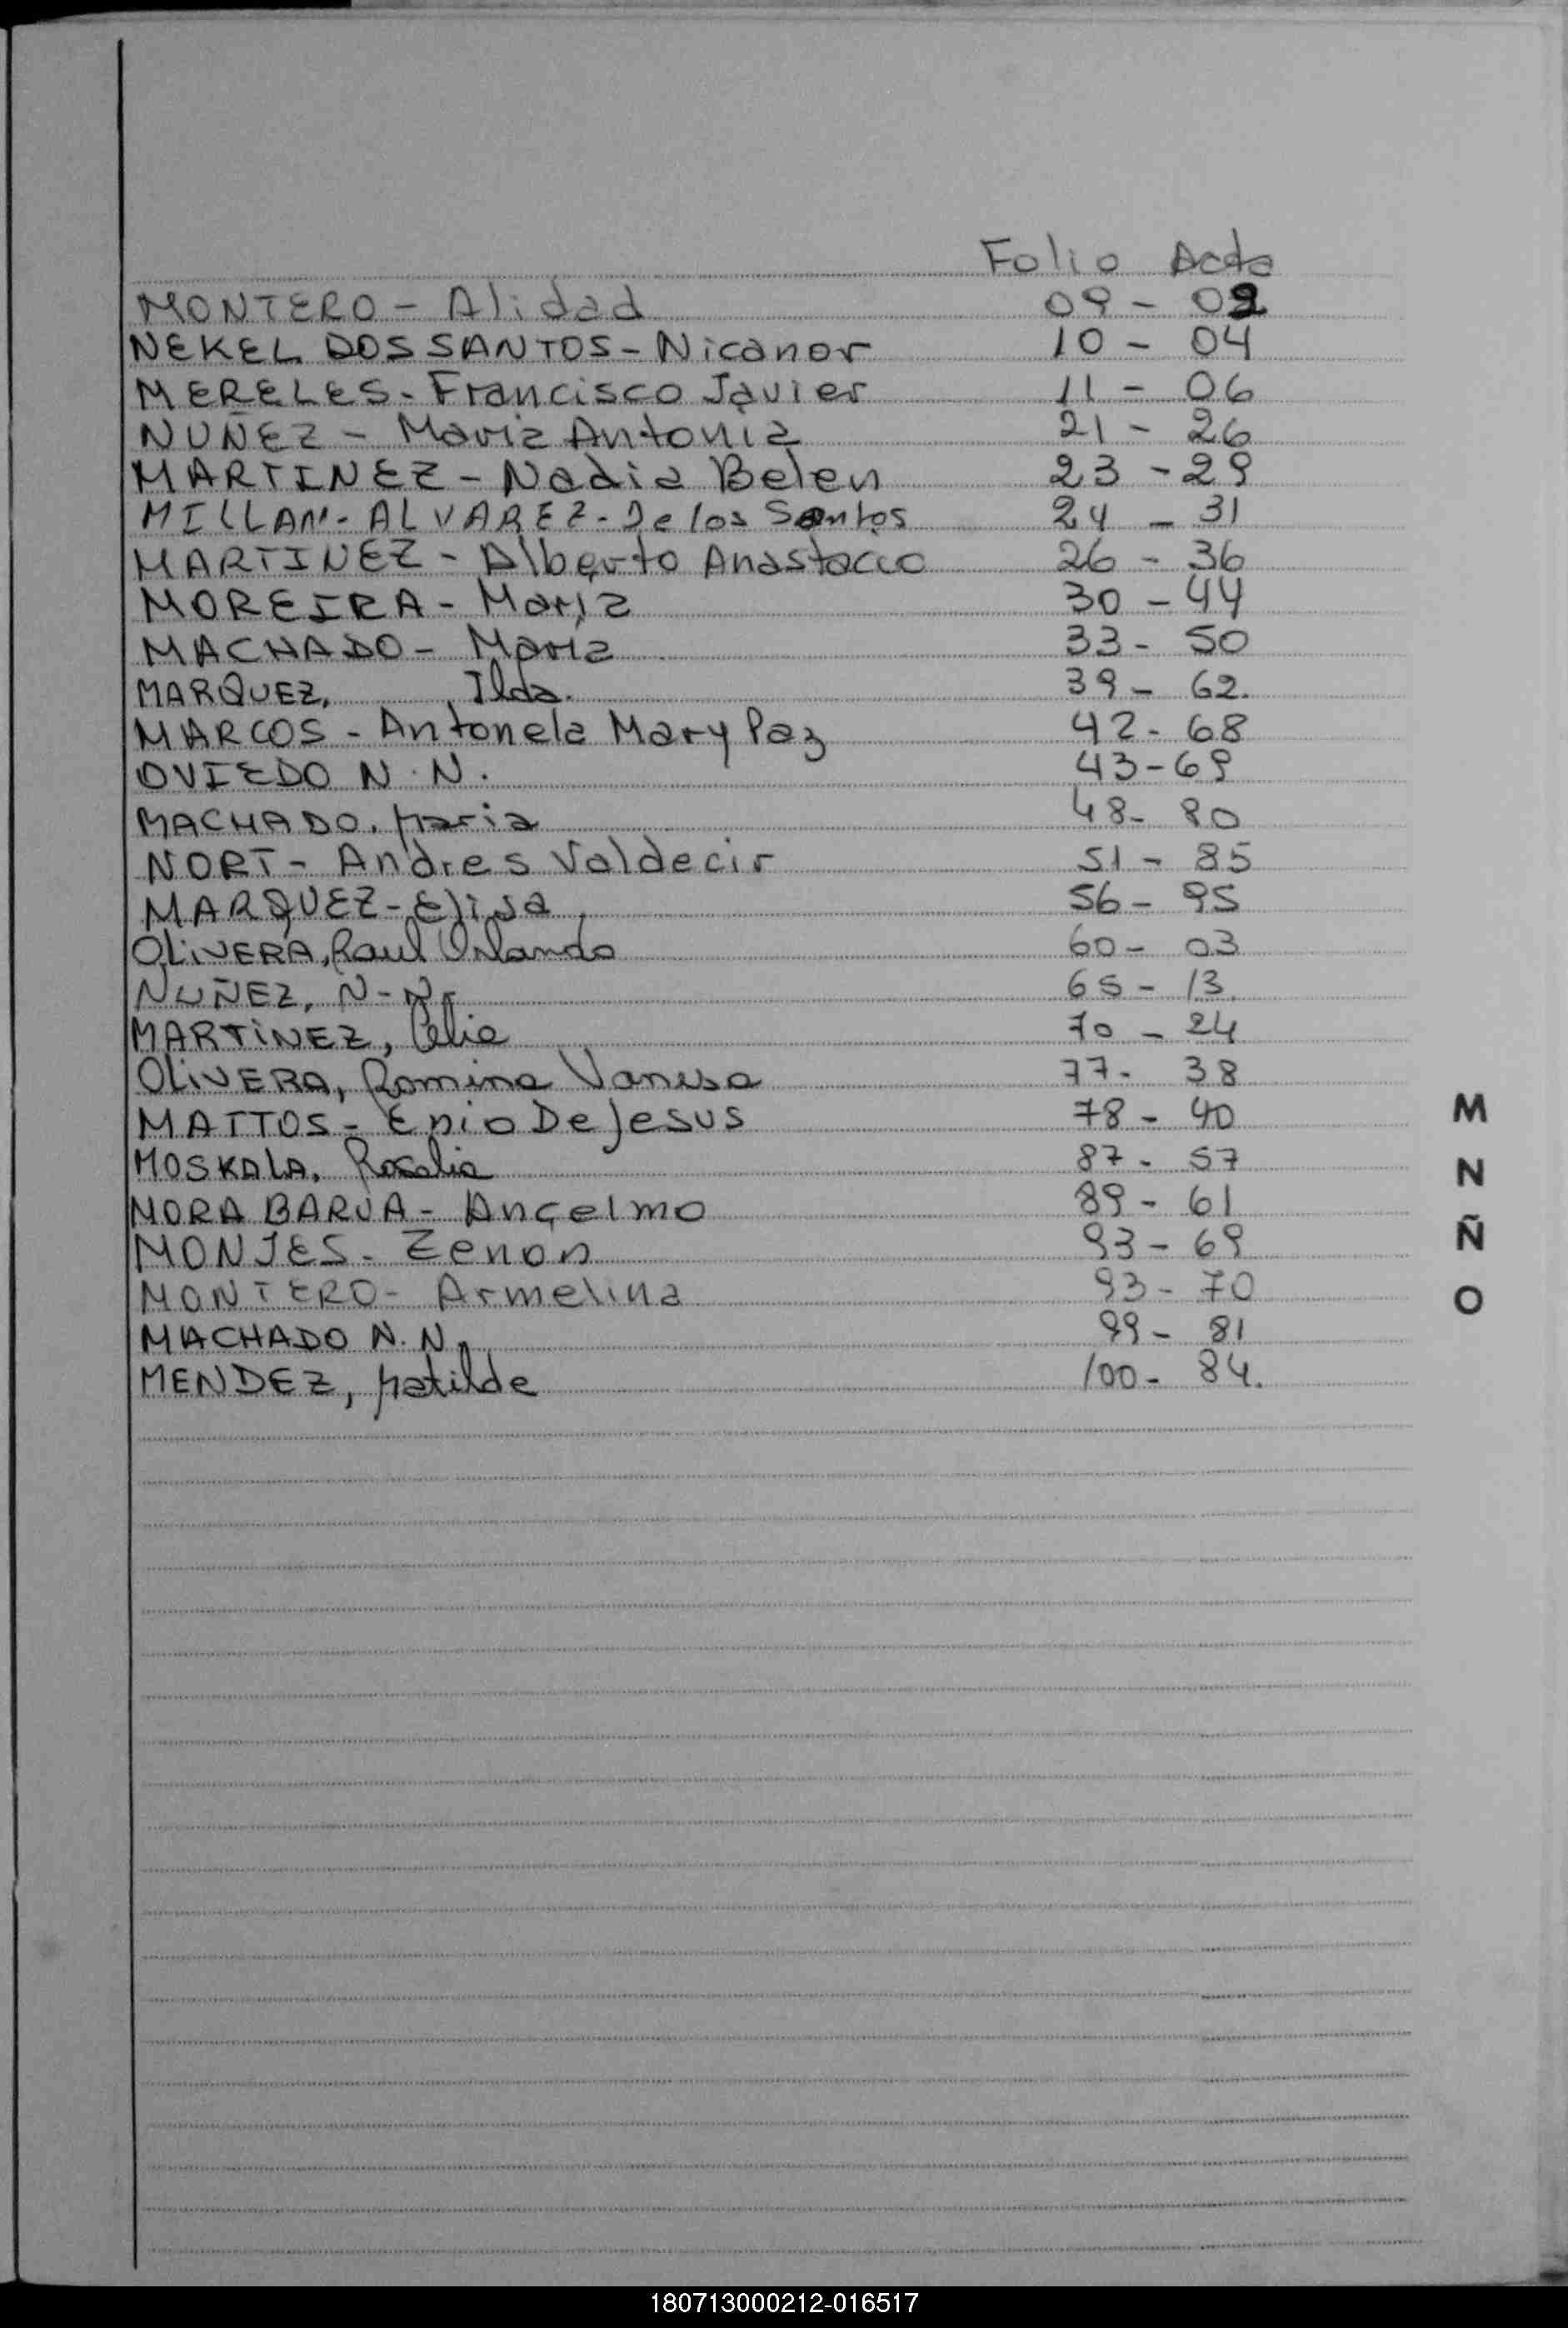 Folio Acta
MONTERO - Alidad 09 - 02
NEKEL DOS SANTOS - Nicanor 10 - 04
MERELES - Francisco Javier 11 - 06
NUÑEZ - Maria Antonia 21 - 26
MARTINEZ - Nadia Belen 23 - 29
MILLAN - ALVAREZ - De los Santos 24 - 31
MARTINEZ - Alberto Anastacio 26 - 36
MOREIRA - Maria 30 - 44
MACHADO - Maria 33 - 50
MARQUEZ, Ilda. 39 - 62.
MARCOS - Antonela Mary Paz 42 - 68
OVIEDO N. N. 43 - 69
MACHADO, Maria 48 - 80
NORT - Andres Valdecir 51 - 85
MARQUEZ - Elisa 56 - 95
OLIVERA, Raul Orlando 60 - 03
NUÑEZ, N - N 65 - 13
MARTINEZ, Celia 70 - 24
OLIVERA, Romina Vanesa 77 - 38
MATTOS - Enio De Jesus 78 - 40
MOSKALA, Rosalia 87 - 57
MORA BARUA - Ancelmo 89 - 61
MONJES - Zenon 93 - 69
MONTERO - Armelina 93 - 70
MACHADO N. N. 99 - 81
MENDEZ, Matilde 100 - 84.
M
N
Ñ
O
180713000212-016517